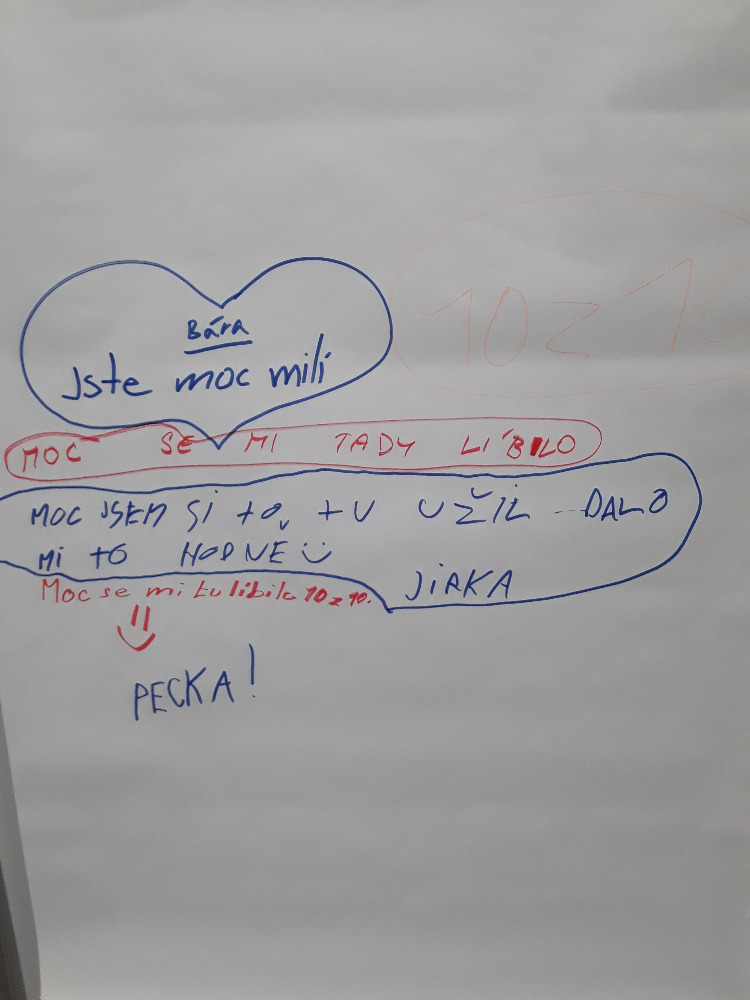 Bára
Jste moc milí
10 z 10
MOC SE MI TADY LÍBILO
MOC JSEM SI TO, TU UŽIL DALO
MI TO HODNE
JIRKA
Moc se mi tu líbilo 10 z 10.
PECKA!